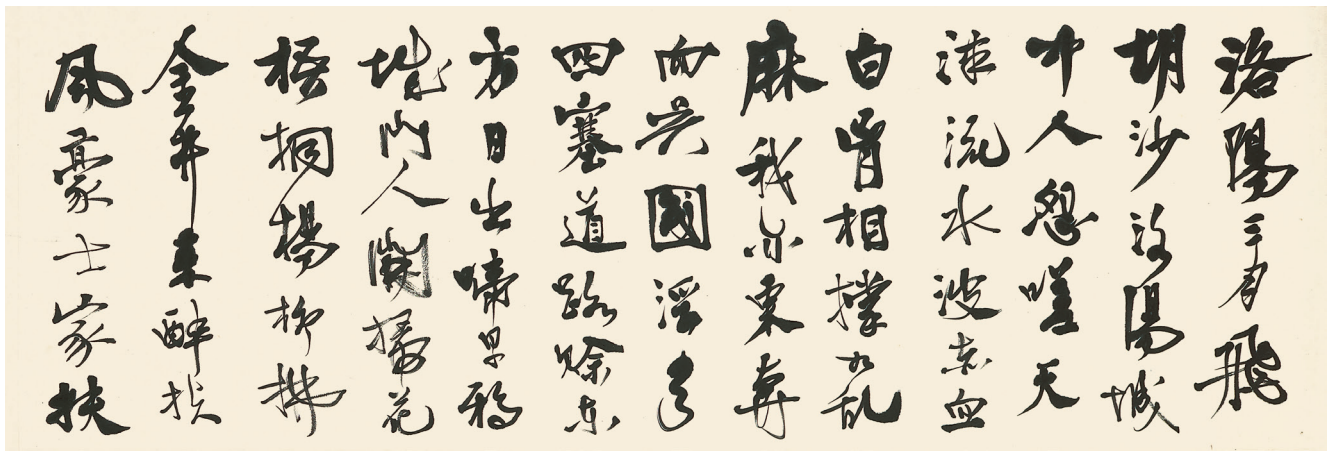 洛陽三月飛
胡沙洛陽城
中人怨嗟天
津流水波赤血
白骨相撐如乱
麻我亦東奔
向吳國浮雲
四塞道路賒東
方日出啼早鴉
城門人開掃花
梧桐楊柳拂
金井來醉扶
風豪士家扶